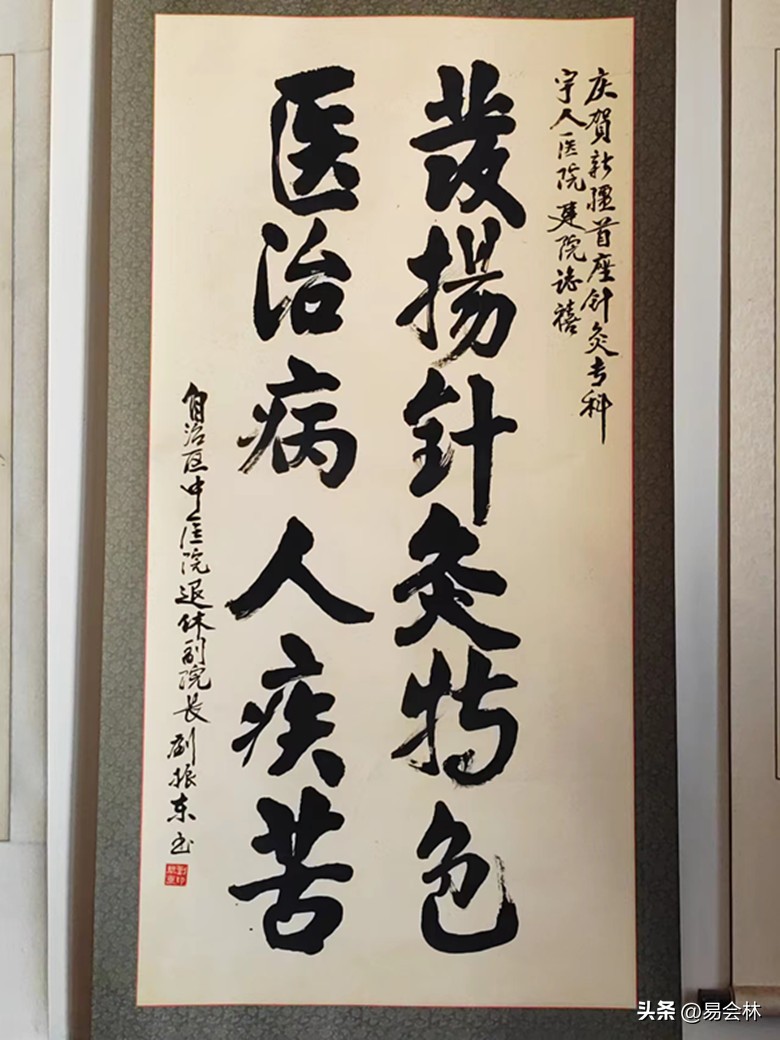 庆贺新疆首座针灸专科
宇人医院建院誌禧
發揚针灸特色
医治病人疾苦
自治区中医院退休副院长劉振东书
头条@易会林